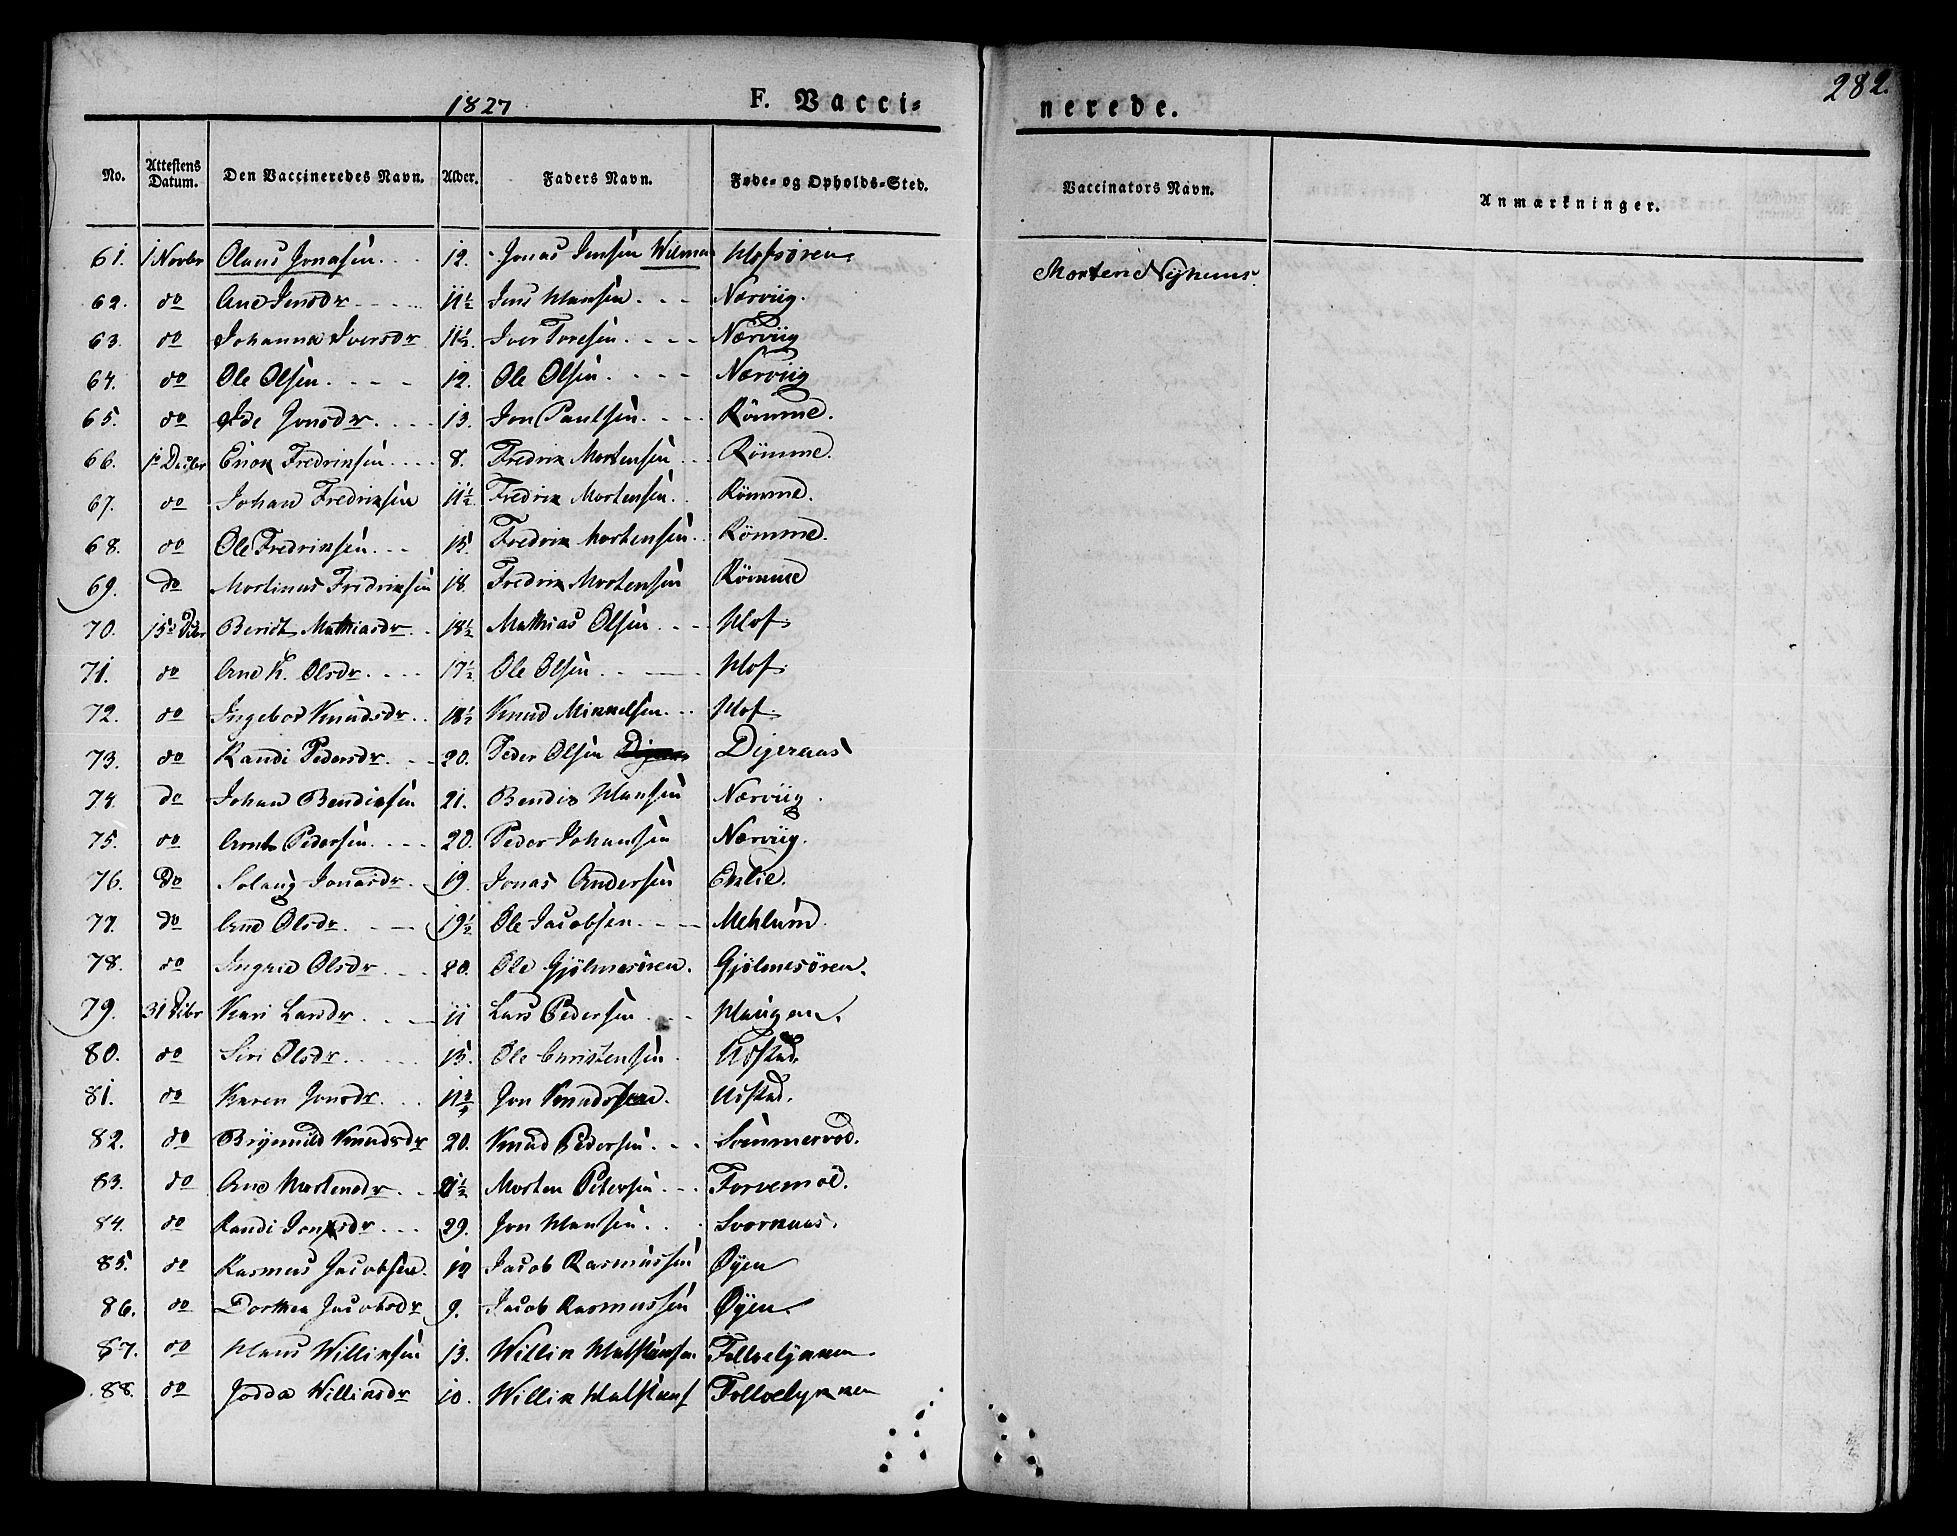 1827 F. Vacci- nerede. 282.
No. Attestens Datum. Den Vaccineredes Navn. Alder. Faders Navn. Føde- og Opholds-Sted. Vaccinators Navn. Anmærkninger.
61. 1 Novbr Olaus Jonasen 12. Jonas Jensen Hofsøren Morten Nyhuus.
62. do Ane Jensdr 11½ Jens Hansen Nærviig.
63. do Johanna Iversdr 11½ Iver Toresen Nærviig
64. do Ole Olsen 12. Ole Olsen Nærviig
65. do Jonsdr 13. Jon Paulsen Römme.
66. Fredriksen 8. Fredrik Mortensen Römme.
67. do Johan Fredriksen 11½ Fredrik Mortensen Römme.
68. do Ole Fredriksen 15. Fredrik Mortensen Römme.
69. do Mortinus Fredriksen 18. Fredrik Mortensen Römme
70. Berit Mathiasdr 18½ Mathias Olsen Hof
71. do Ane K. Olsdr 17½ Ole Olsen Hof
72. do Ingebor Knudsdr 18½ Knud Mikkelsen Hof
73. do Randi Pedersdr 20. Peder Olsen Digeraas
74. do Johan Bendixsen 21. Bendix Hansen Nærviig.
75. do Arnt Pedersen 20. Peder Johansen Nærviig.
76. Do Solaug Jonasdr 19. Jonas Andersen Eklie.
77. do Ane Olsdr 19½ Ole Jacobsen Mehlum.
78. do Ingrid Olsdr 20. Ole Gjölmesören. Gjölmesören.
79. 31 Dcbr Kari Larsdr 11 Lars Pedersen Haugen.
80. do Siri Olsdr 15. Ole Christensen Ustad.
81. do Karen Jonsdr Jon Knudssen. Ustad.
82. do Brynnild Knudsdr 20. Knud Pedersen Sommervod.
83. do Ane Mortensdr Morten Petersen Forvemoe.
84. do Randi Jonsdr 29. Jon Hansen Svornaas.
85. do Rasmus Jacobsen. 12 Jacob Rasmussen Øyen
86. do Dorthea Jacobsdr 9. Jacob Rasmussen Øyen.
87. do Hans Williksen 13. Willik Halstensen Follvelykken.
88. do Williksdr 10. Willik Halstens Follvelykken